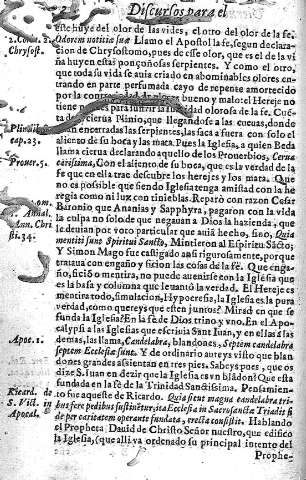 Discursos para el
este huye del olor de las vides, el otro del olor de la fe.
2. Corint. 2.
Odorem notitiæ suæ Llamo el Apostol la fe, segun declara-
Chrysost.
cion de Chrysostomo, pues de esse olor, que es el de la vi
ña huyen estas ponçoñosas serpientes. Y como el otro,
que toda su vida se auia criado en abominables olores en-
trando en parte perfumada cayo de repente amortecido
por la
bueno y malo: el Hereje no
tiene
para sufrir la
olorosa de la fe. Cuẽ
ta
cierua Plinio, que llegandose a las cueuas, donde
cap. 23.
encerradas las serpientes, las saca a fuera con solo el
aliento de su boca y las mata. Pues la Iglesia, a quien Beda
Prouer. 5.
llama cierua declarando aquello de los Prouerbios, Cerua
carissima, Con el aliento de su boca, que es la verdad de la
fe que en ella trae descubre los herejes y los mata. Que
no es possible que siendo Iglesia tenga amistad con la he
regia como ni luz con tinieblas. Reparò con razon Cesar
Annal.
Baronio que Ananias y Sapphyra, pagaron con la vida
Ann. Chri
la culpa no solo de que negauan a Dios la hazienda, que
sti. 34.
le deuian por voto particular que auiã hecho, sino, Quia
mentiti sunt Spiritui Sancto, Mintieron al Espiritu Sãcto;
Y Simon Mago fue castigado assi rigurosamente, porque
trataua con engaño y ficion las cosas de la fè. Que enga-
ño, ficiõ o mentira, no puede auenirse con la Iglesia que
es la basa y columna que leuantò la verdad. El Hereje es
mentira todo, simulacion, Hypocresia, la Iglesia es la pura
verdad, como quereys que esten juntos? Mirad en que se
funda la Iglesia? En la fè de Dios trino y vno. En el Apo-
calypsi a las Iglesias que escriuia Sant Iuan, y en ellas a las de
Apoc. 1.
mas, las llama, Candelabra, blandones, Septem candelabra
septem Ecclesiæ sunt. Y de ordinario aureys visto que blan
dones grandes assientan en tres pies. Sabeys pues, que os
dize S. Iuan en dezir que la Iglesia es vn blãdon? Que esta
fundada en la fè de la Trinidad Sanctissima. Pensamien
Ricard. de
to fue aqueste de Ricardo. Quia sicut magna candelabra tri-
S. Vict. in
bus ferè pedibus sustinentur, ita Ecclesia in Sacrosancta Triadis fi
Apocal.
de per caritatem operante fundata, erecta consistit. Hablando
el Propheta Dauid de Christo Señor nuestro, que edificò
la Iglesia, que alli va ordenado su principal intento del
Prophe-